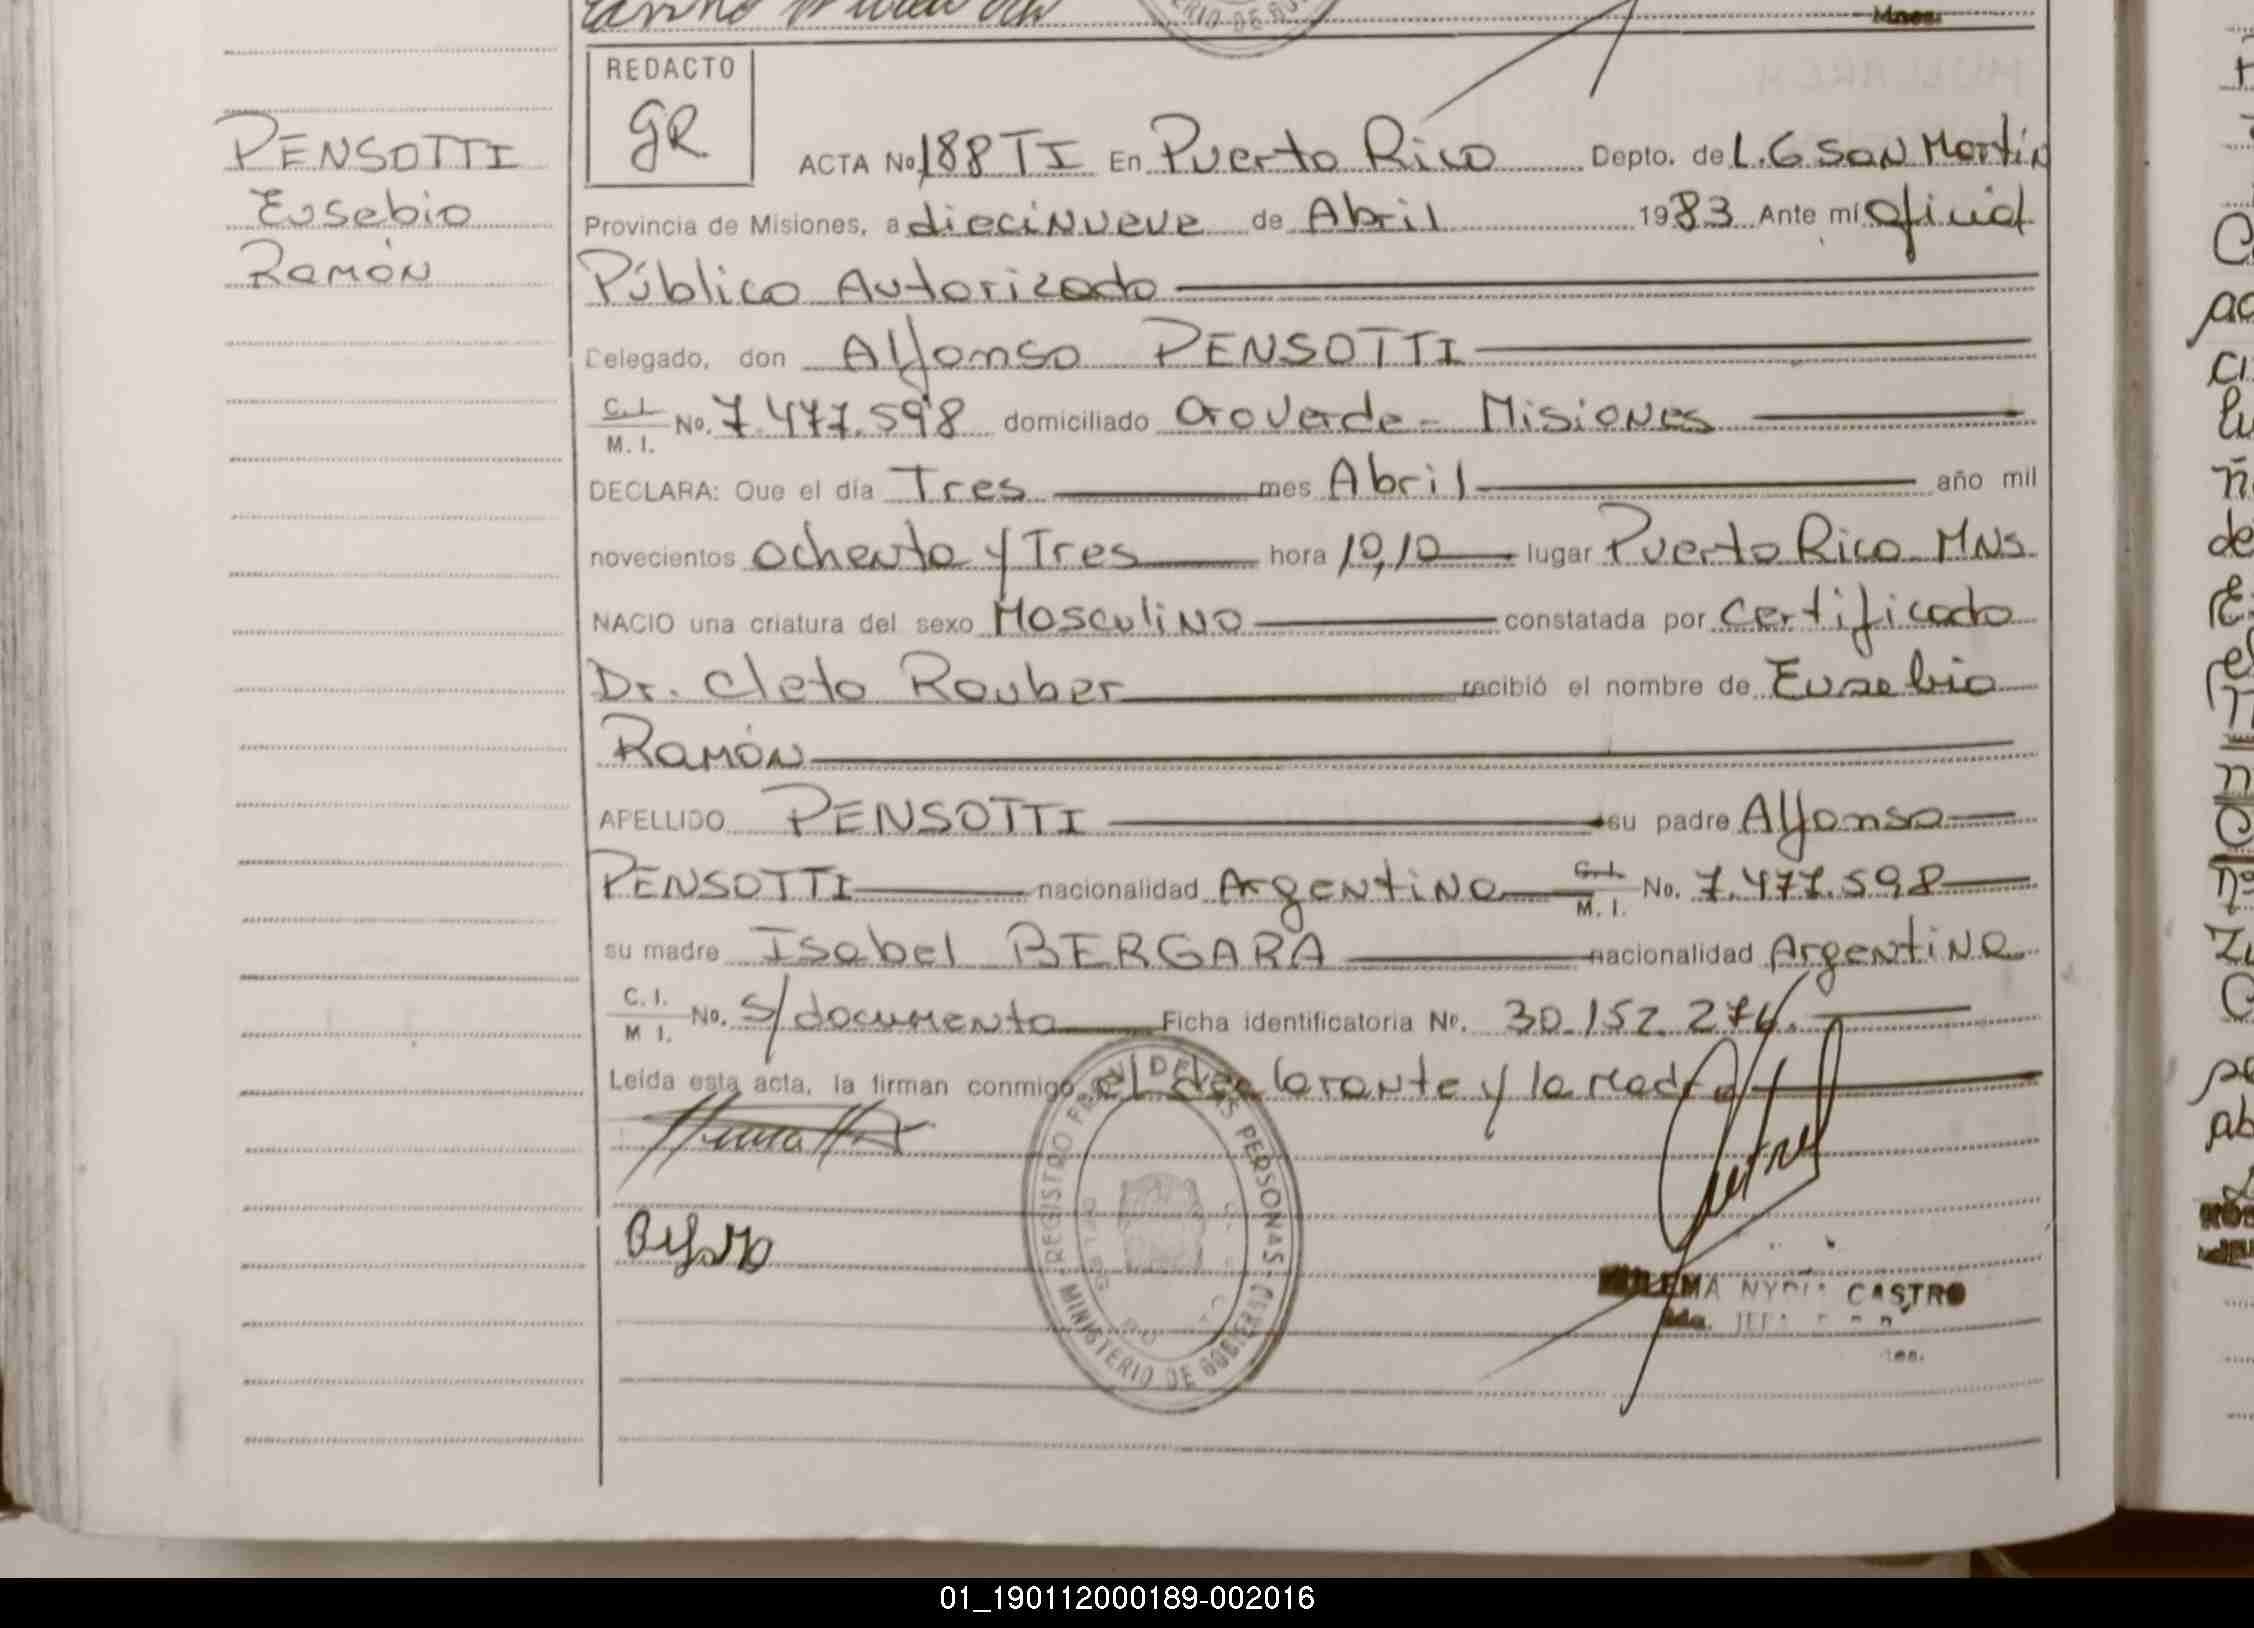 Mnes.
REDACTO
GR
PENSOTTI
Eusebio
Ramón
ACTA No. 188 TI En Puerto Rico Depto. de L.G San Martín
Provincia de Misiones, a diecinueve de Abril 1983 Ante mí Oficial
Público Autorizado
Delegado, don Alfonso PENSOTTI
C.I. M.I. No. 7.477.598 domiciliado Oroverde - Misiones
DECLARA: Que el día Tres mes Abril año mil
novecientos ochenta y Tres hora 10,10 lugar Puerto Rico Mns.
NACIO una criatura del sexo Masculino constatada por Certificado
Dr. Cleto Rauber recibió el nombre de Eusebio
Ramón
APELLIDO PENSOTTI su padre Alfonso
PENSOTTI nacionalidad Argentina C.I. M.I. No. 7.477.598
su madre Isabel BERGARA nacionalidad Argentina
C.I. M I. No. s/documento Ficha identificatoria No. 30.152.274.
Leída esta acta, la firman conmigo el declarante y la Madre
REGISTRO PROV. DE LAS PERSONAS - MINISTERIO DE GOBIERNO
CASTRO
01_190112000189-002016